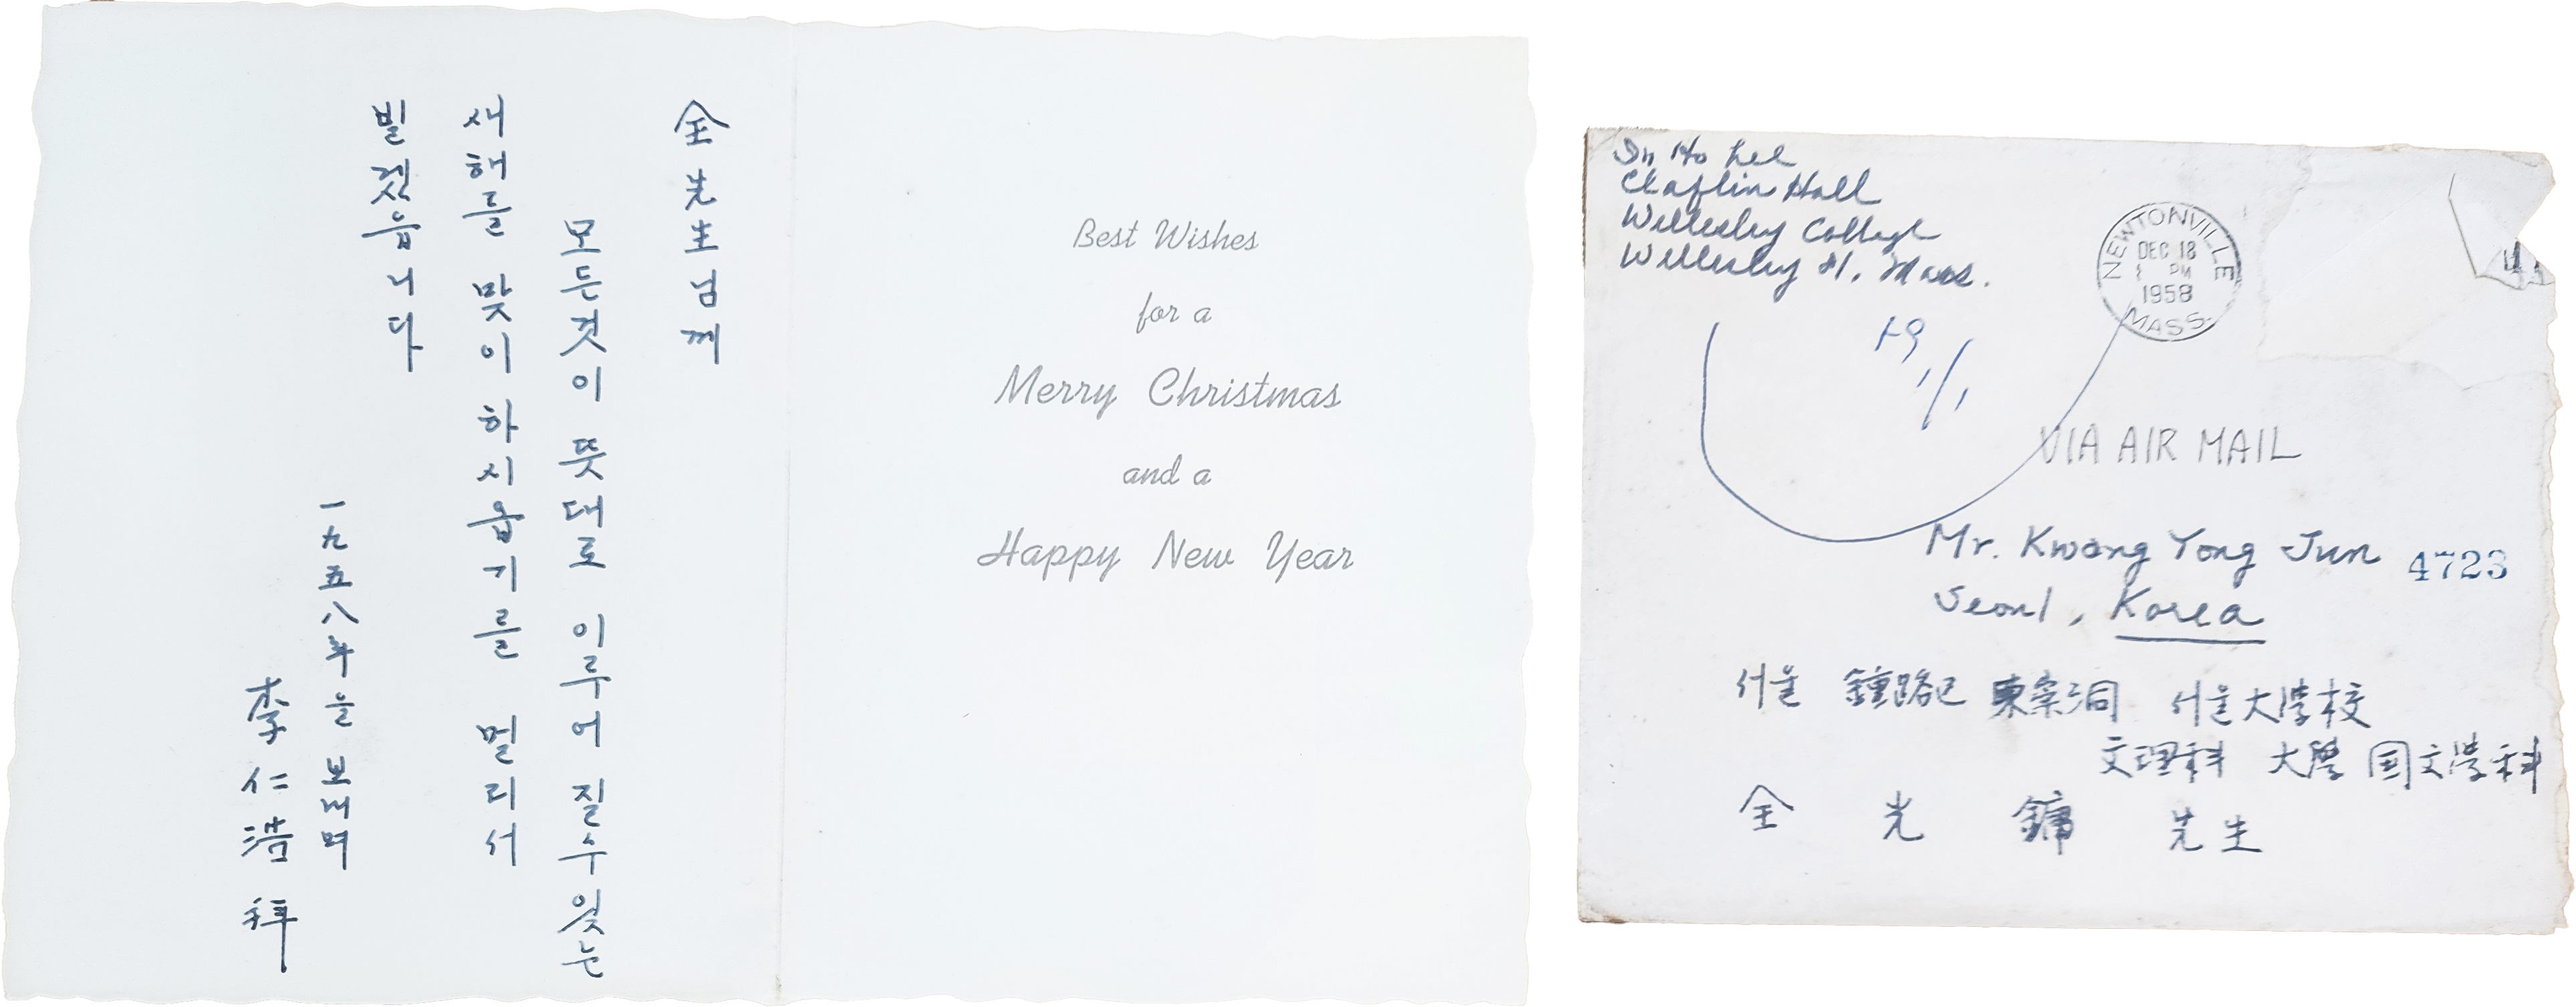 全 先生님께
모든것이 뜻대로 이루어 질수있는
새해를 맞이하시옵기를 멀리서
빌겠읍니다
一九五八年을 보내며
李仁浩 拜
Best Wishes
for a
Merry Christmas
and a
Happy New Year
In Ho Lee
Claflin Hall
Wellesley College
Wellesley 81, Mass.
NEWTONVILLE
DEC 18
PM
1958
MASS.
VIA AIR MAIL
Mr. Kwang Yong Jun
4723
Seoul, Korea
서울 鍾路区 東崇洞 서울大学校
文理科 大學 国文学科
全 光 鏞 先生